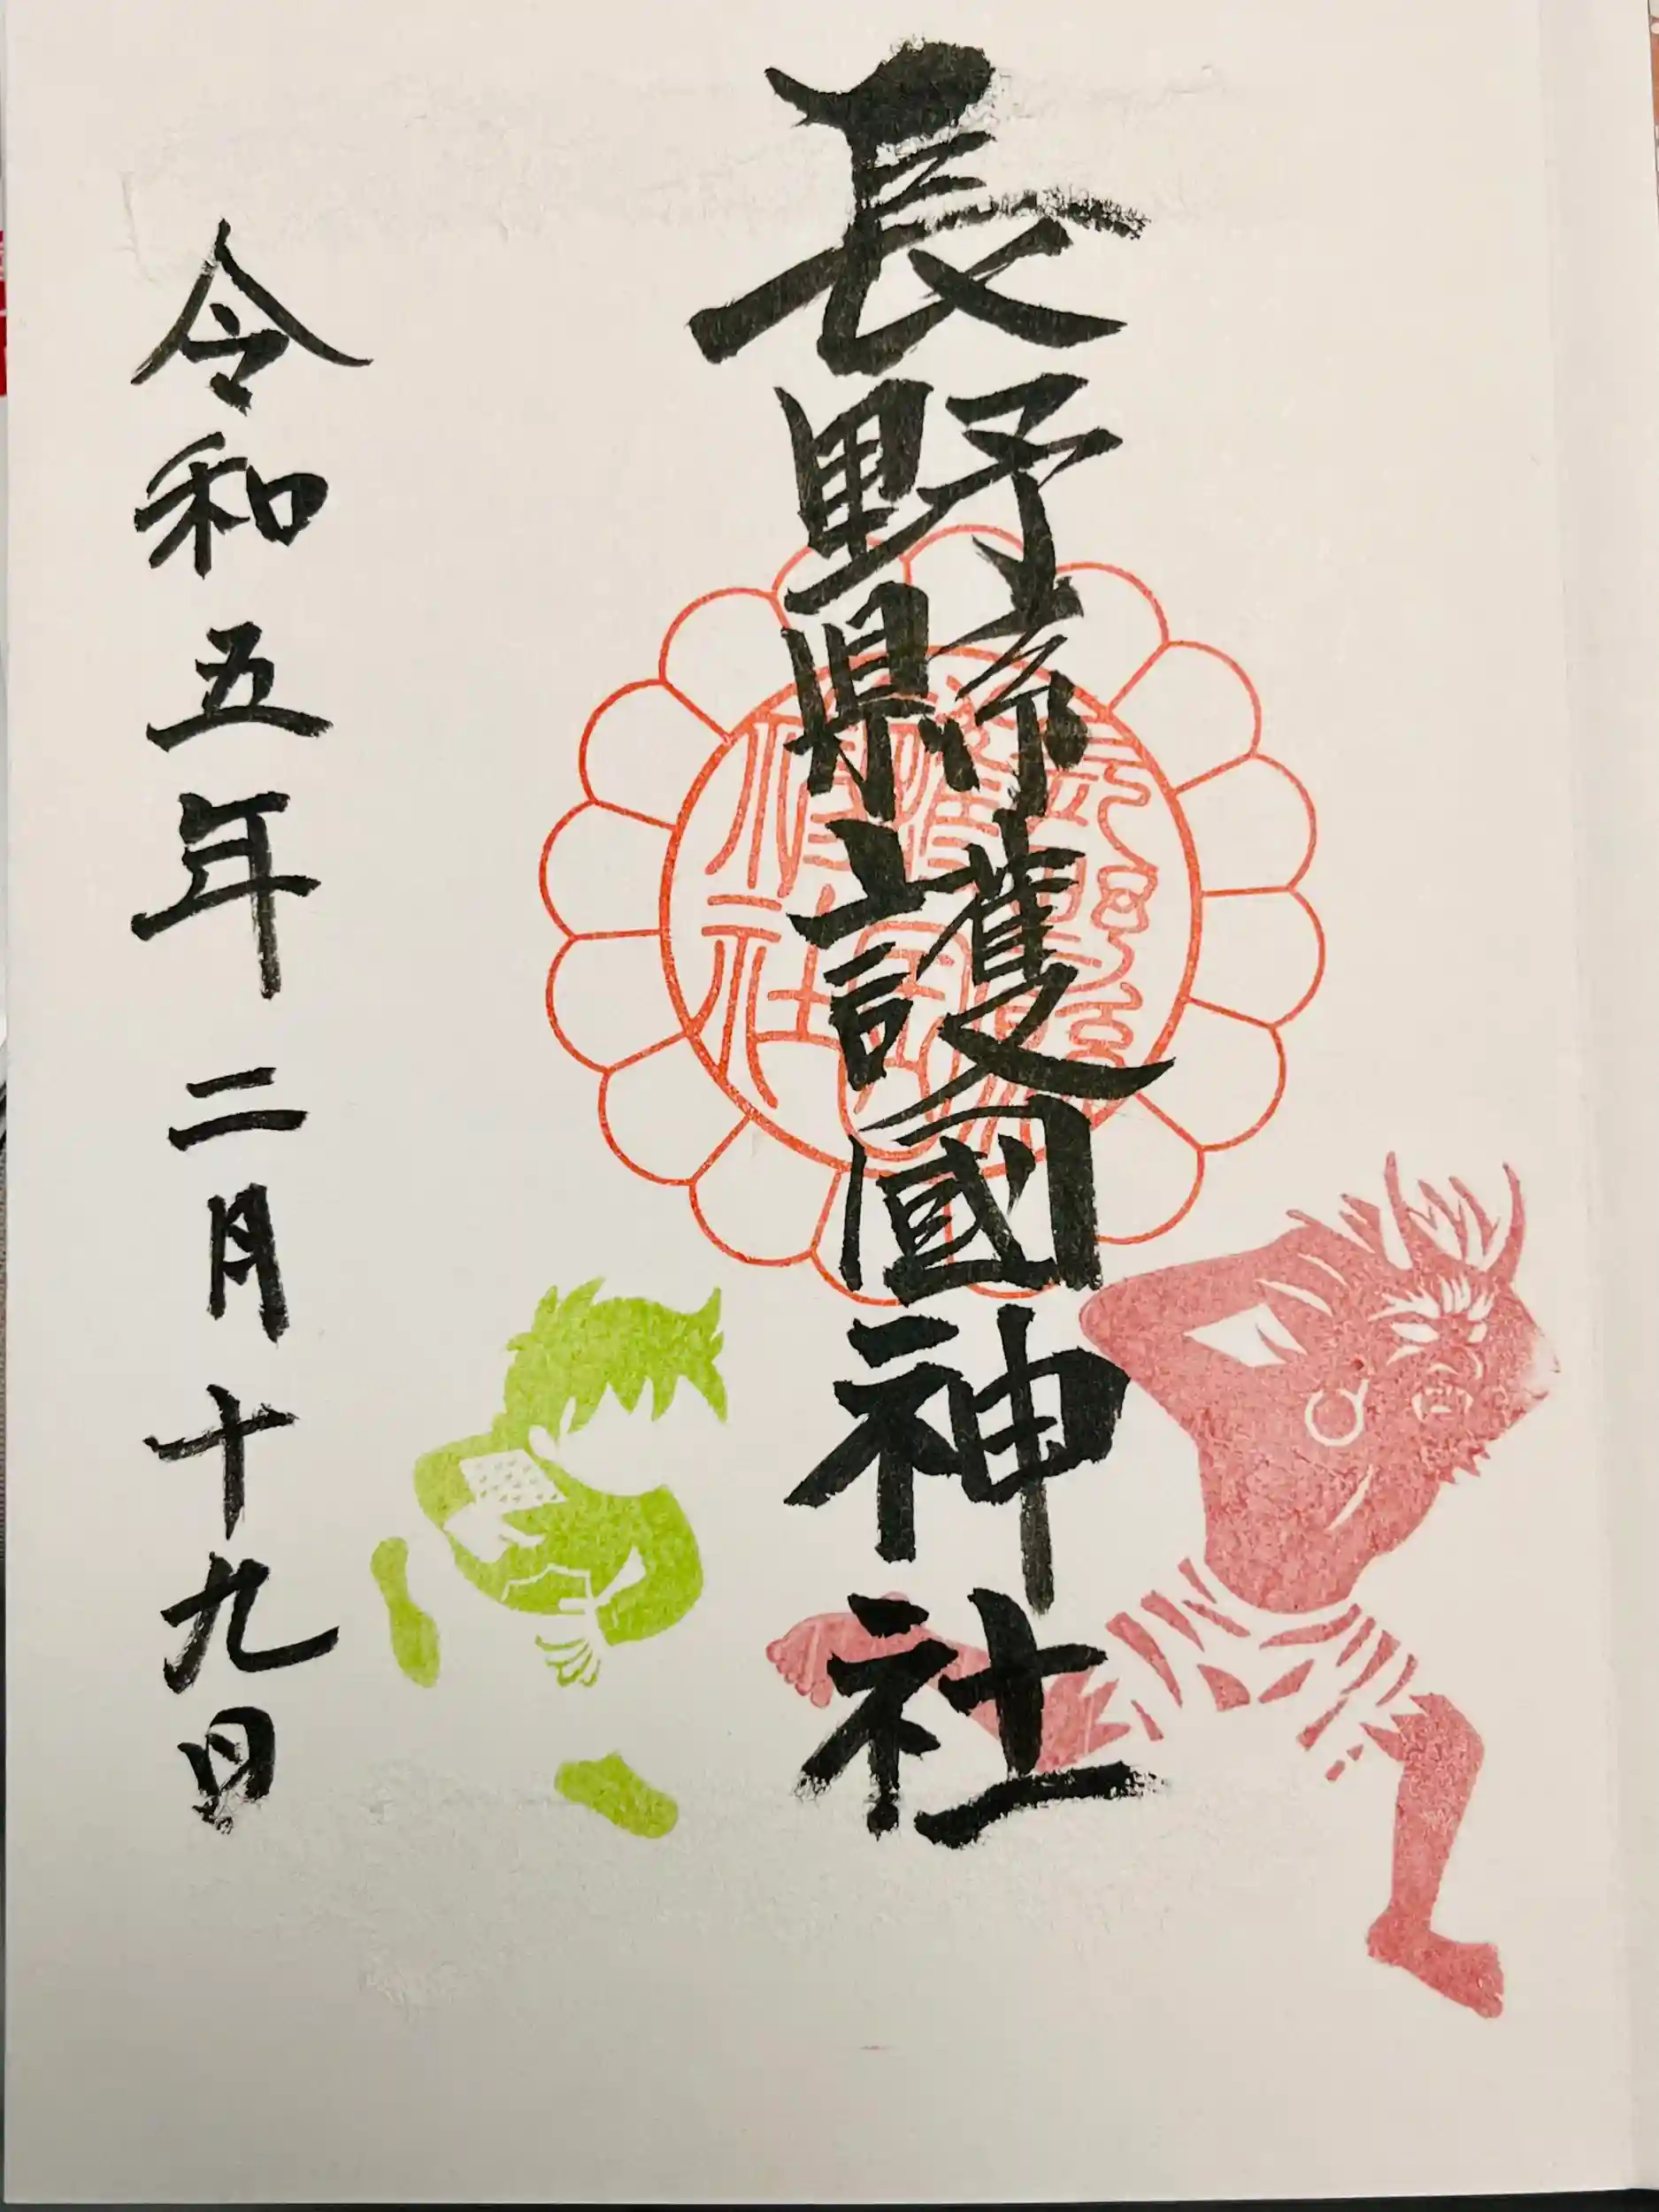 長野縣護國神社
令和五年二月十九日